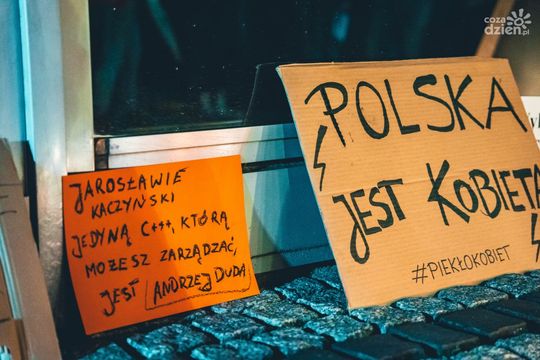 JAROSŁAWIE
KACZYŃSKI
JEDYNĄ C***, KTÓRĄ
MOŻESZ ZARZĄDZAĆ,
JEST ANDRZEJ DUDA
POLSKA
JEST KOBIETĄ
#PIEKŁOKOBIET
coza
dzien.pl